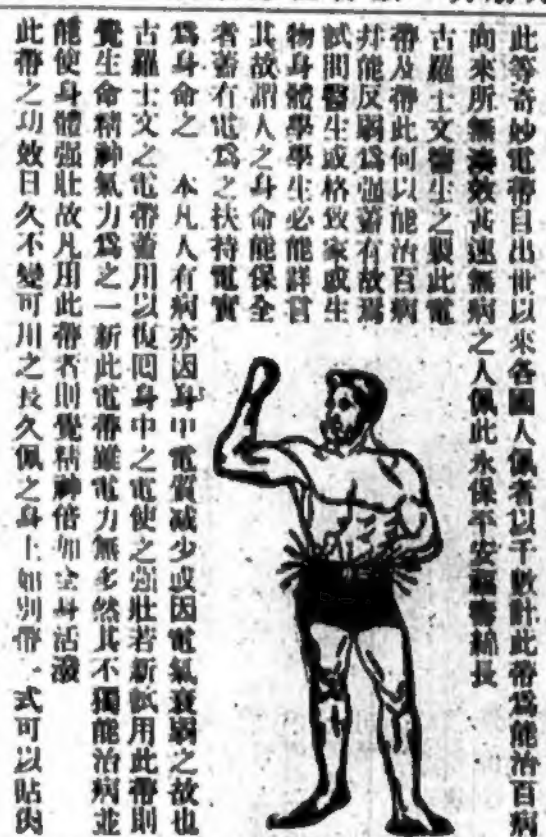 此等奇妙電帶自出世以來各國人佩者以千數計此帶爲能治百病
向來所無 效甚速無病之人佩此永保平安 長
古羅士文醫生之製此電
帶及帶此何以能治百病
并能反弱爲强蓋有故焉
試問醫生或格致家或生
物身體學學生必能詳言
其故謂人之身命能保全
者蓋有電爲之扶持電實
爲身命之 本凡人有病亦因身中電質减少或因電氣衰弱之故也
古羅士文之電帶蓋用以復回身中之電使之强壯若新試用此帶則
覺生命精神氣力爲之一新此電帶雖電力無多然其不獨能治病並
能使身體强壯故凡用此帶者則覺精神倍加全身活潑
此帶之功效日久不變可用之長久佩之身上如別帶一式可以貼肉